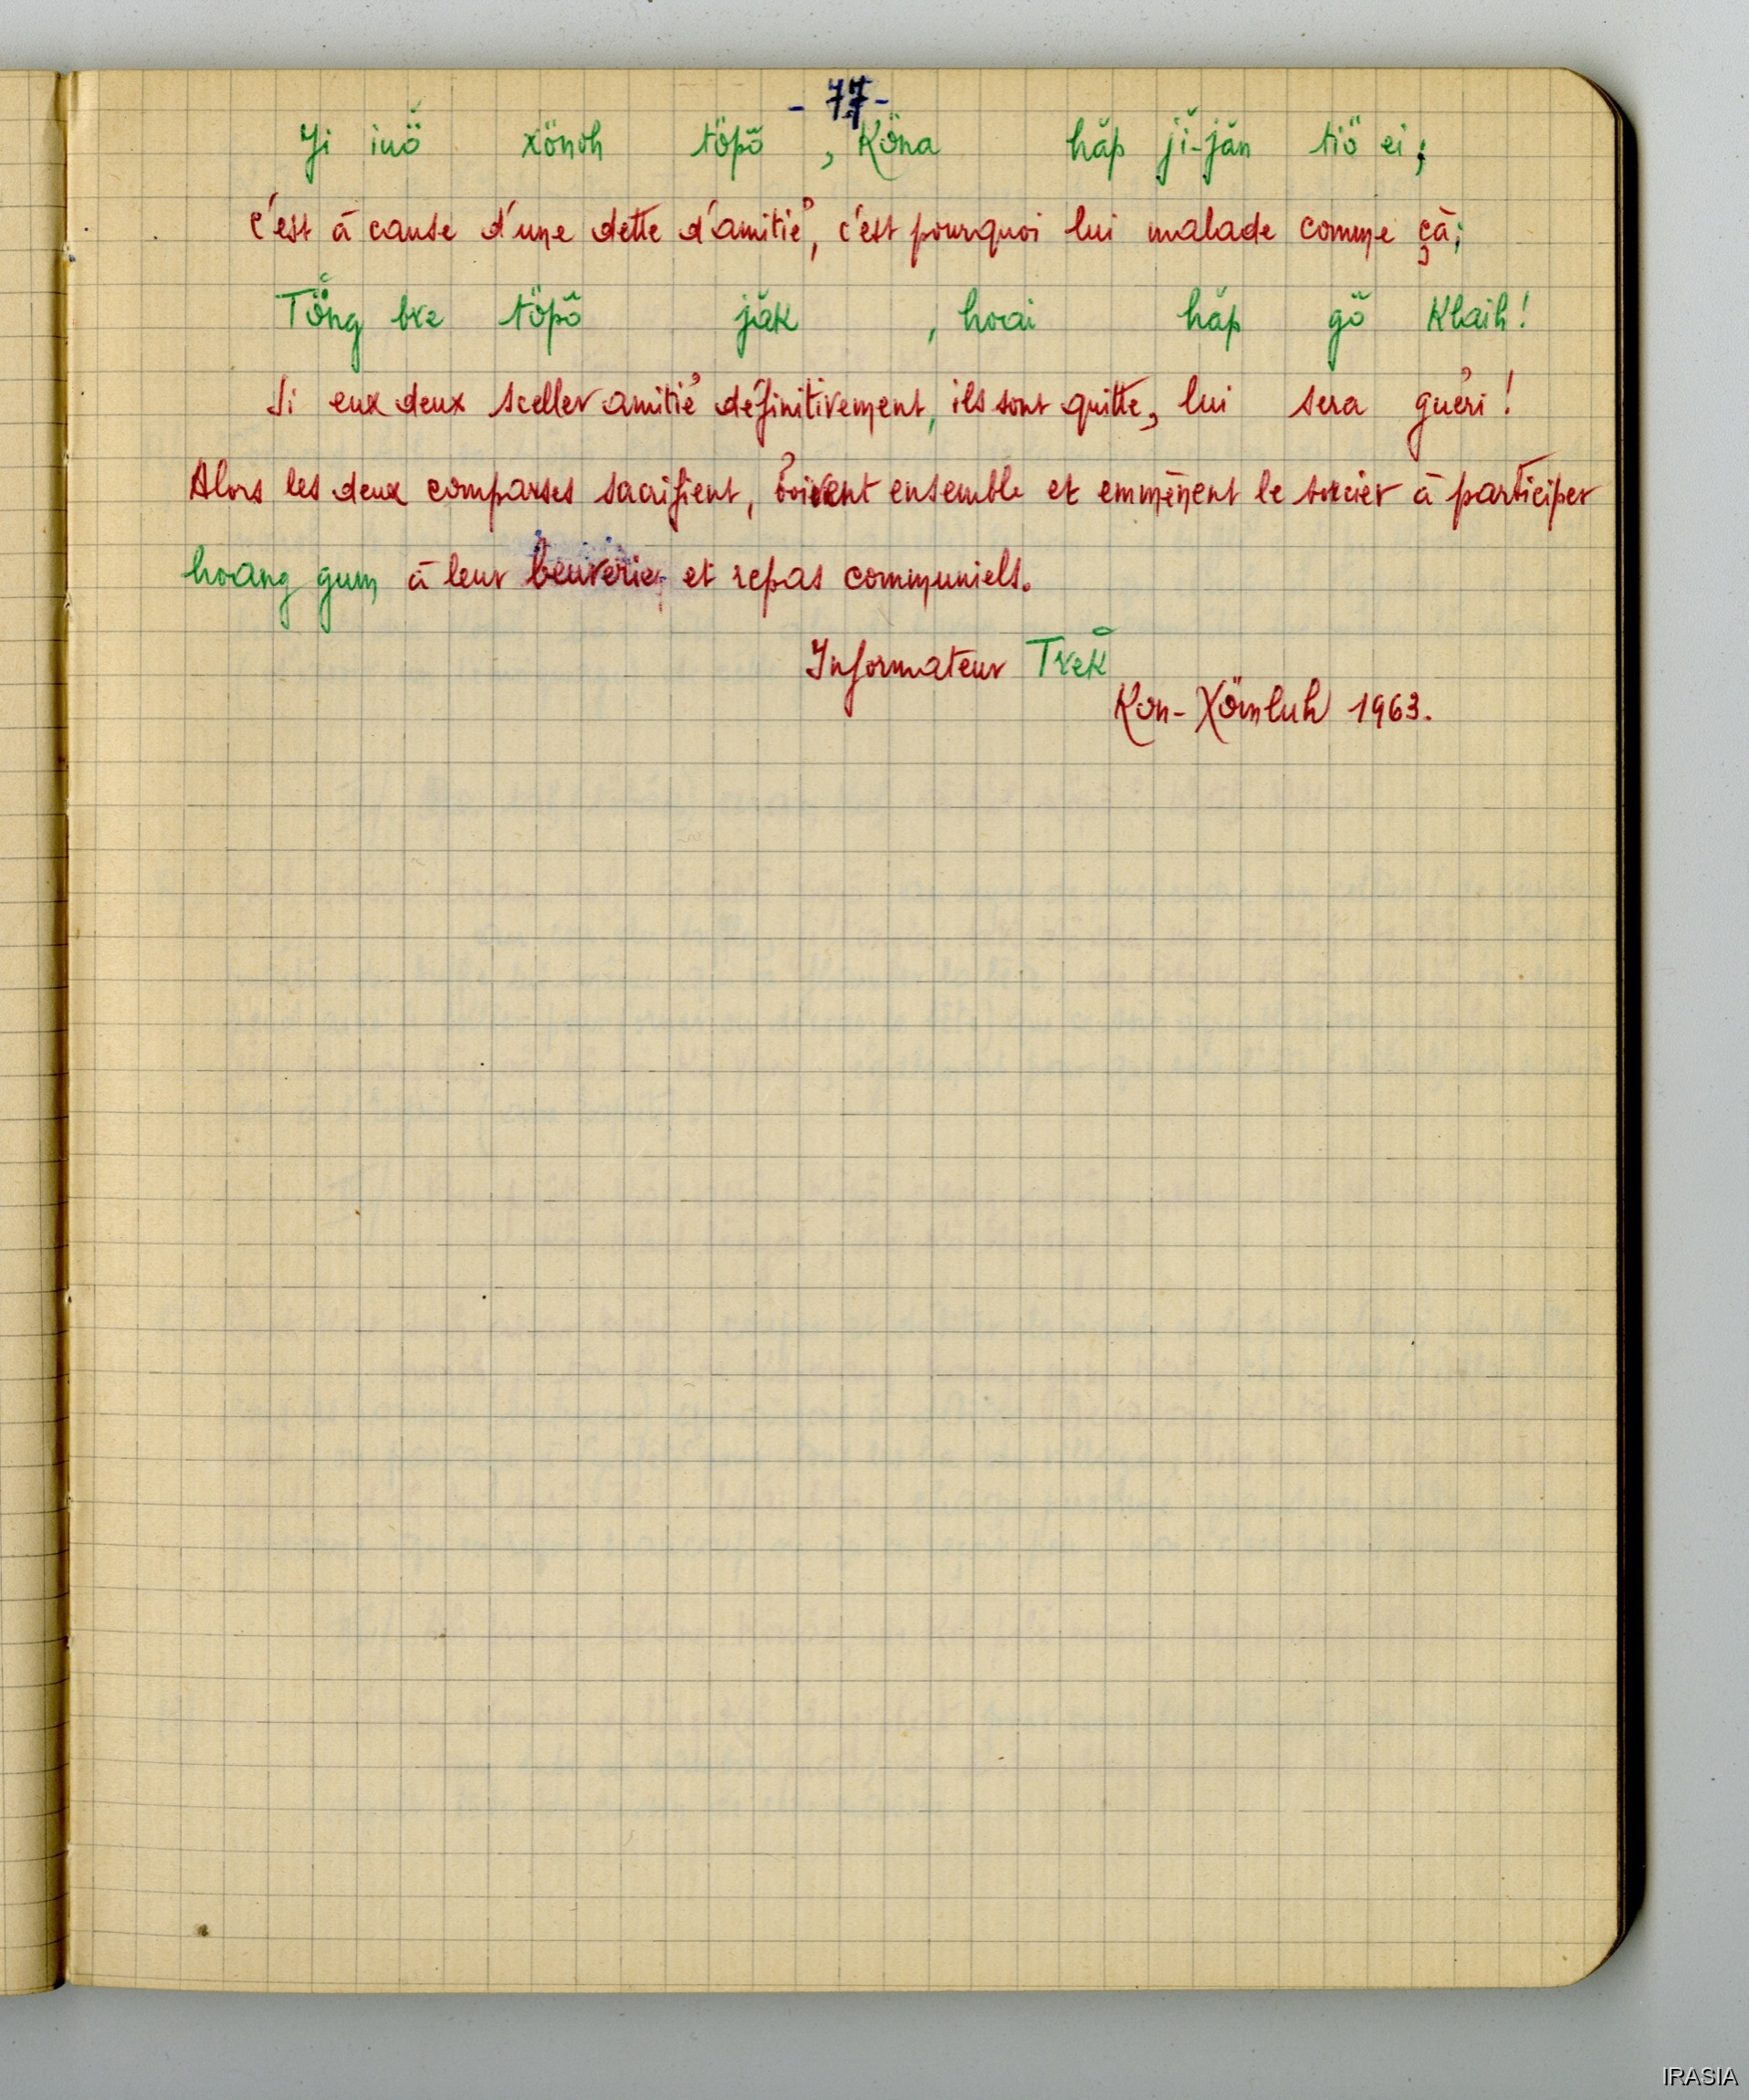 - 77 -
Ji inö̆ xönoh töpö̆, Köna hăp jĭ-jăn tiö ei;
c'est à cause d'une dette d'amitié, c'est pourquoi lui malade comme çà;
Tö̆ng bre töpö̆ jăk, hoai hăp gö̆ klaih!
Si eux deux sceller amitié définitivement, ils sont quitte, lui sera guéri!
Alors les deux comparses sacrifient, boivent ensemble et emmènent le sorcier à participer
hoang gum à leur beuverie et repas communiels.
Informateur Trek̆
Kon-Xömluh 1963.
IRASIA